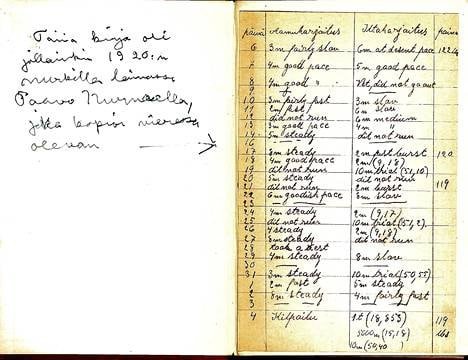 Tämä kirja oli
jälleenkin 1920:n
lainassa
Paavo Nurmella,
joka kopioi vieressä
olevan
päivä Aamuharjoitus Iltaharjoitus paino
6 3m fairly slow 6m at decent pace 122.4
7 4m good pace 5m good pace
8 4m good " Wet, did not go out
9
10 3m fairly fast 3m slow
11 2m fast 6m slow
12 did not run 6m medium
13 3m good pace 4m "
14 5m steady did not run
16
17 8m steady 2m fast burst 120
18 4m good pace 2m (9,18)
19 did not run 10m trial (51,10)
20 5m steady did not run
21 did not run 2m burst 119
22 6m goodish pace 8m slow
23
24 4m steady 2m (9,17)
25 did not run 10m trial (51,2)
26 4 steady 2m (9,18)
27 8m steady did not run
28 took a rest
29 4m steady 8m slow
30
31 3m steady 10m trial (50,55)
1 2m fast 5m steady
2 8m steady 4m fairly fast
3
4 Kilpailu (18,35) 119
5000m (15,18) lbs
10m (50,40)